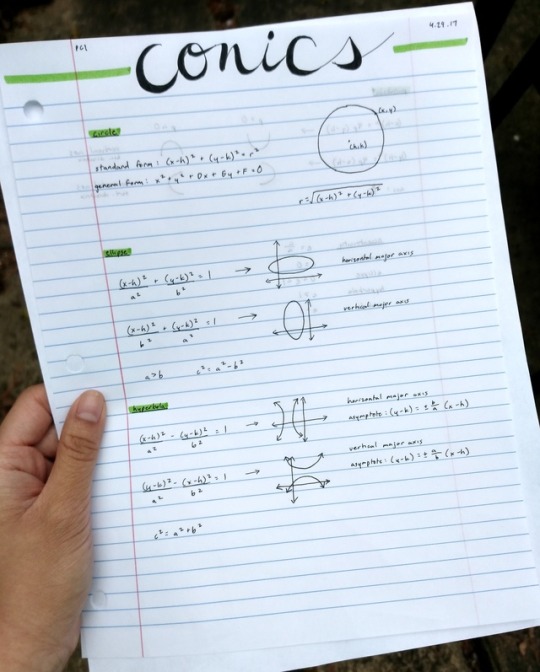 PC1
4.24.17
conics
circle
(x,y)
(h,k)
standard form: (x-h)² + (y-k)² = r²
general form: x² + y² + Dx + Ey + F = 0
r = √(x-h)² + (y-k)²
ellipse
(x-h)²/a² + (y-k)²/b² = 1 → horizontal major axis
(x-h)²/b² + (y-k)²/a² = 1 → vertical major axis
a > b c² = a² - b²
hyperbola
(x-h)²/a² - (y-k)²/b² = 1 → horizontal major axis
asymptote: (y-k) = ± b/a (x-h)
(y-k)²/a² - (x-h)²/b² = 1 → vertical major axis
asymptote: (y-k) = ± a/b (x-h)
c² = a² + b²